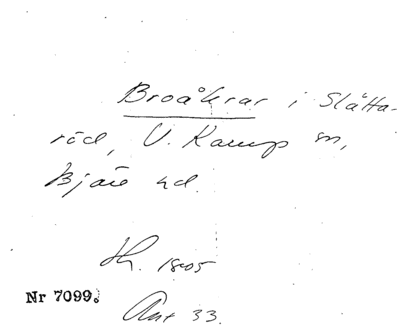 Broåkrar i Slätta-
röd, V. Karup sn,
Bjäre hd.
Sk. 1805
Nr 7099.
Akt 33.